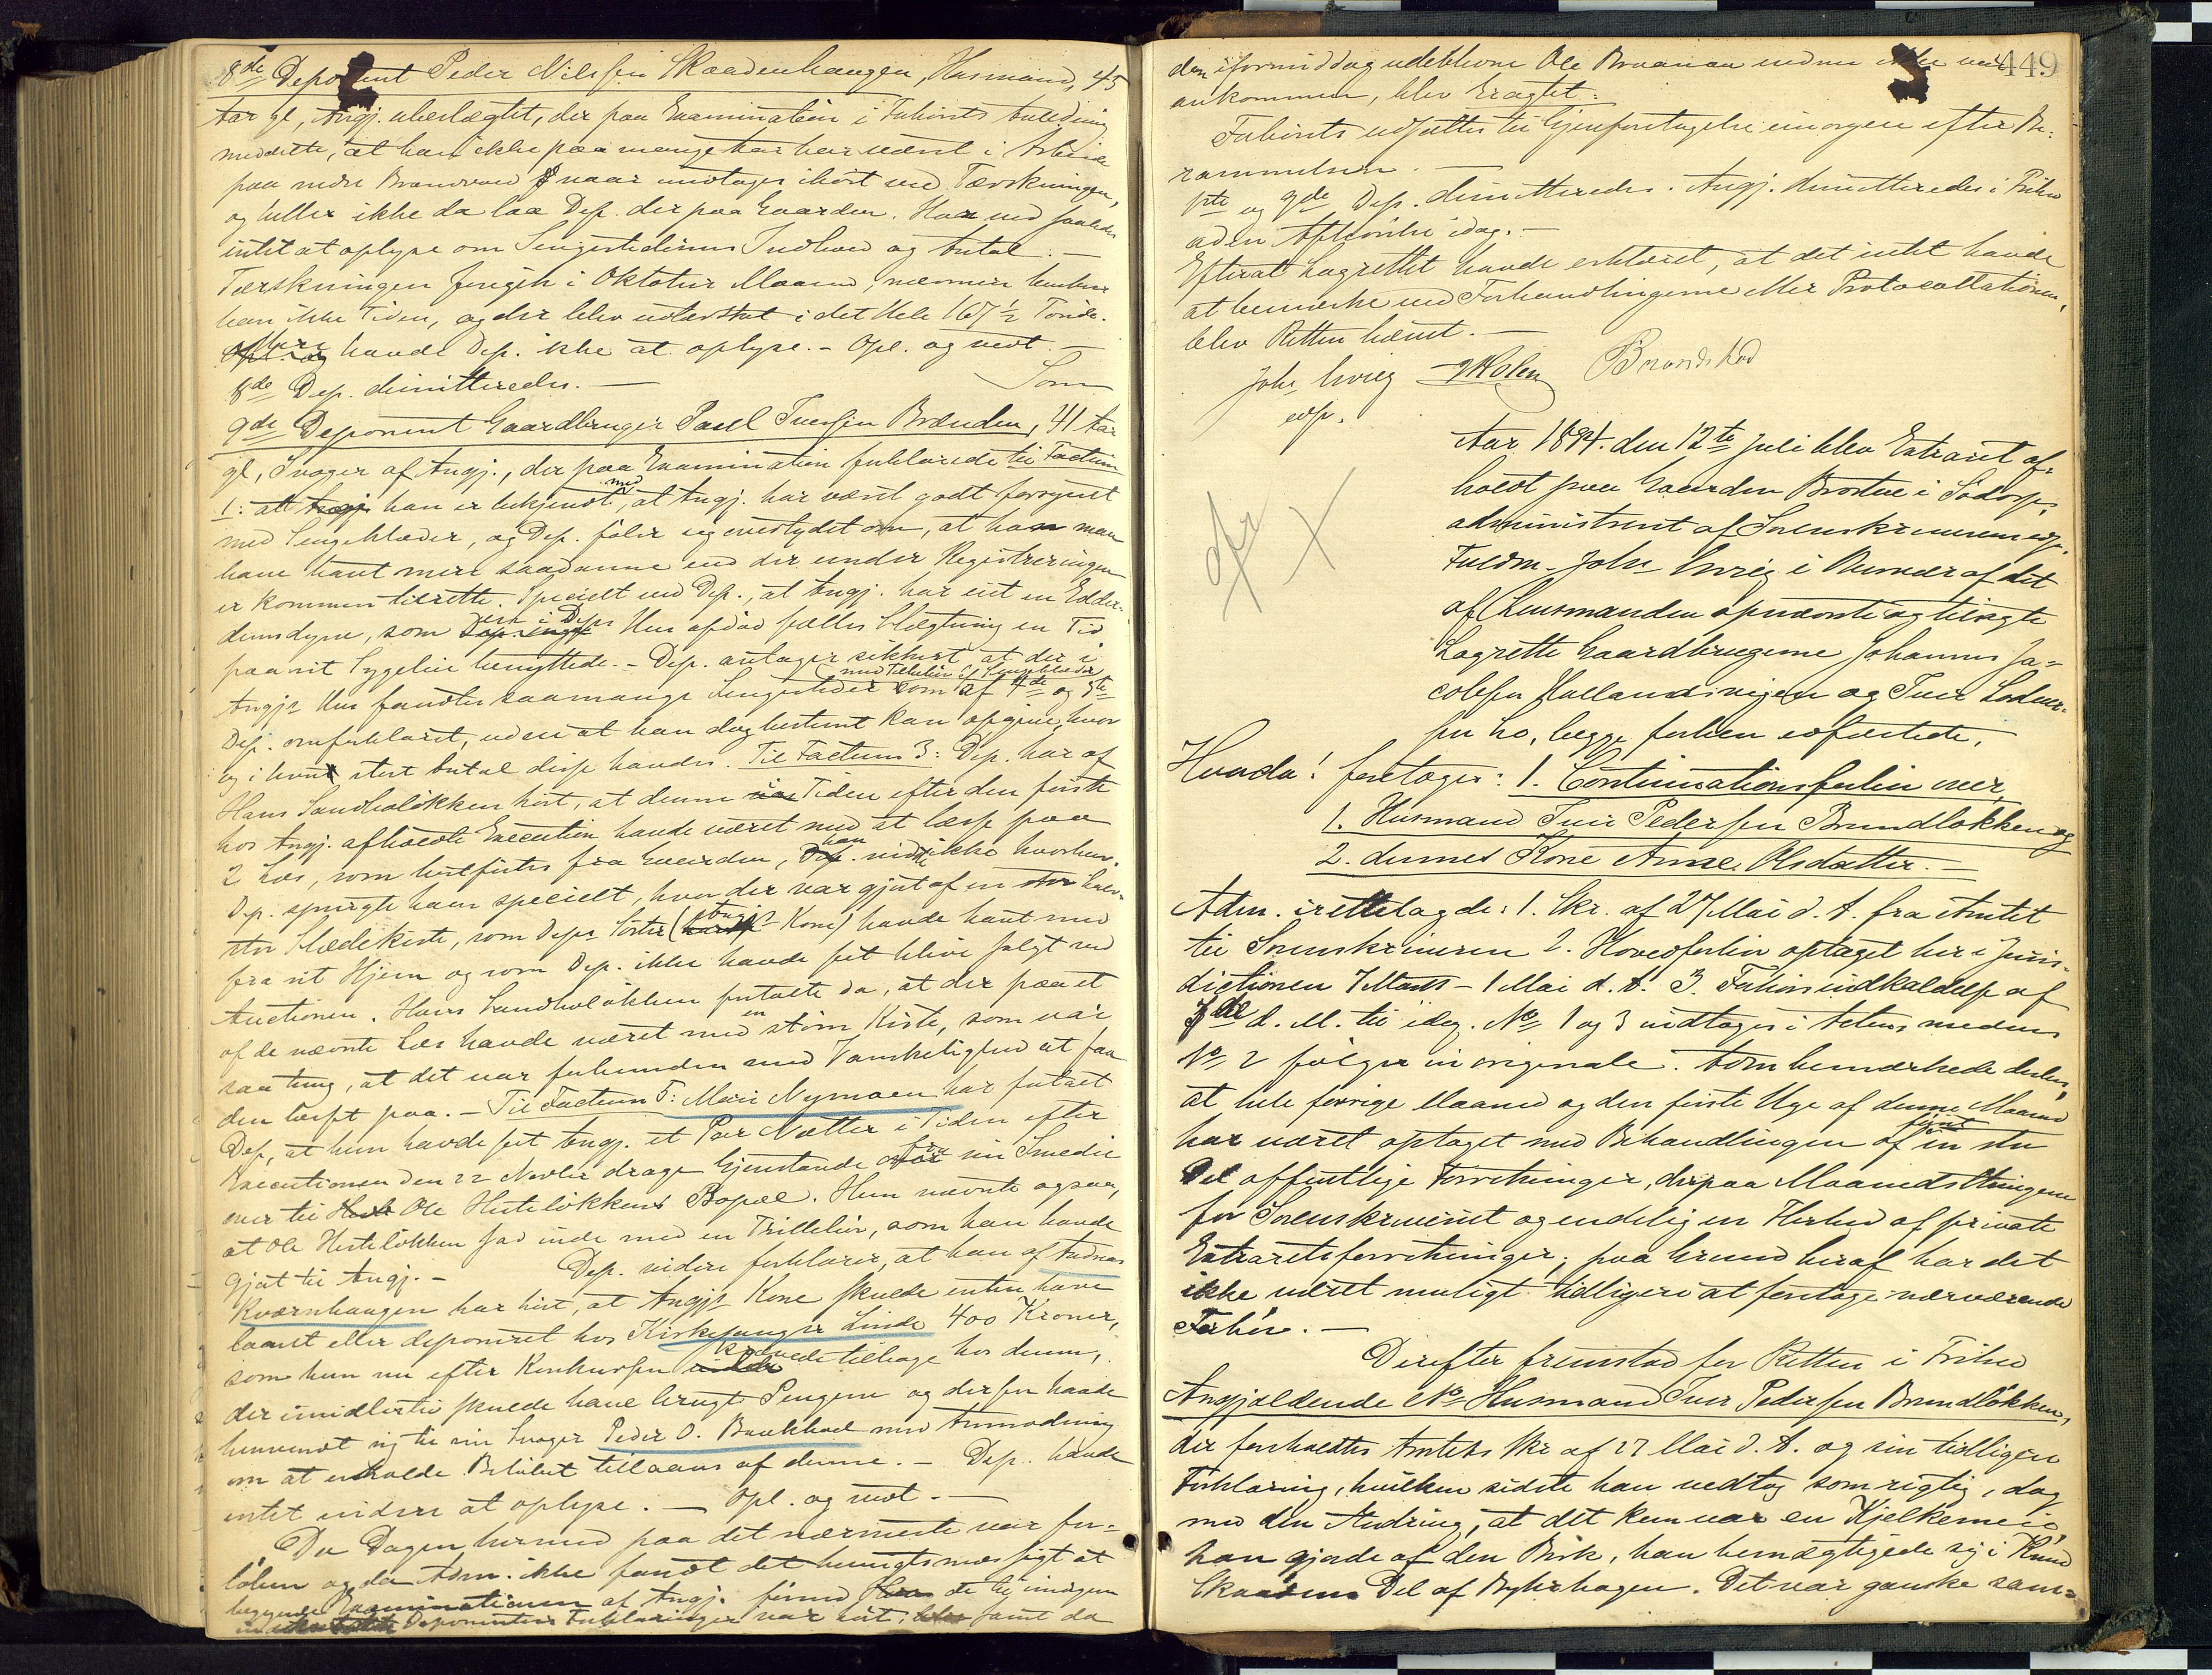 8de Deponent Peder Nilssen Skaadenhaugen, Husmand, 45
Aar gl, Angj. ubeslægtet, der paa Examination i Forhørets Anledning
meddelte, at han ikke paa mange Aar har været i Arbeide
paa nedre Brandvold naar undtages ihøst ved Tærskningen,
og heller ikke da laa Dep. der paa Gaarden. Har ved saaledes
intet at oplyse om Sengestedernes Indhold og Antal. —
Tærskningen foregik i Oktober Maaned, nærmere husker
han ikke Tiden, og der blev udtærsket i det Hele 167½ Tønde.
havde Dep. ikke at oplyse. – Opl. og vedt. —
8de Dep. dimitteredes. — Som
9de Deponent Gaardbruger Paul Iversen Brænden, 41 Aar
gl, Svoger af Angj., der paa Examination forklarede til Factum
1: at han er bekjendt med, at Angj. har været godt forsynet
med Sengeklæder, og Dep. føler sig overbydet om, at han maa
have havt mere saadanne end der under Registreringen
er kommen tilrette. Specielt ved Dep., at Angj. har eiet en Edder-
dunsdyne, som i Deps Hus afdød fælles Slægtning en Tid
paa sit Sygeleie benyttede. – Dep. antager sikkert at der i
med Tilbehør af Sengeklæder
Angjs Hus fandtes saamange Sengesteder som af 4de og 5te
Dep. omforklaret, uden at han dog bestemt kan opgive, hvor
og i hvort stort Antal disse havdes. Til Factum 3: Dep. har af
Hans Sandboløkken hørt, at denne i Tiden efter den første
hos Angj. afholdte Execution havde været med at læsse paa
2 Læs, som bortførtes fra Gaarden, han vidste ikke hvorhen.
Dep. spurgte ham specielt, hvor der var gjort af en stor
stor Klædekiste, som Deps Søster (Angjs Kone) havde havt med
fra sit Hjem og som Dep. ikke havde seet blive solgt ved
Auctionen. Hans Sandboløkken fortalte da, at der paa et
af de nævnte Læs havde været med en større Kiste, som var
saa tung, at det var forbunden med Vanskelighed at faa
den læsset paa. – Til Factum 5: Mari Nymoen har fortalt
Dep., at hun havde seet Angj. et Par Nætter i Tiden efter
Executionen den 22 Novbr drage Gjenstande fra sin Smedie
over til Ole Hesteløkkens Bopæl. Hun nævnte ogsaa,
at Ole Hesteløkken sad inde med en Trillebør, som han havde
gjort til Angj. – Dep. videre forklarer, at han af Andreas
Kværnhaugen har hørt, at Angjs Kone skulde enten have
laant eller deponeret hos Kirkesanger Linde 400 Kroner,
som hun nu efter Konkursen krævede tilbage hos denne,
der imidlertid skulde have brugt Pengene og derfor havde
henvendt sig til sin Svoger Peder O. Baukhol med Anmodning
om at erholde Beløbet tillaans af denne. – Dep. havde
intet videre at oplyse. — Opl. og vedt. —
Da Dagen hermed paa det nærmeste var for-
løben og da Adm. ikke fandt det hensigtsmæssigt at
begynde Examinationen af Angj. førend de til imorgen
Deponenters Forklaringer var hørt, samt da
449
den iformiddag udeblevne Ole Bruanaa endnu ikke var
ankommen, blev Eragtet:
Forhørets udsættes til Gjenforetagelse imorgen efter Be-
rammelsen. —
1ste og 9de Dep. dimitteredes. Angj. dimitteredes i Frihed
uden Afhørelse idag. —
Efterat Lagrettet havde erklæret, at det intet havde
at bemærke ved Forhandlingerne eller Protocollationen,
blev Retten hævet. —
Johs Hvrieg Holen Brandvold
edsv.
Aar 1894. den 12te Juli blev Extraret af-
holdt paa Gaarden Brostue i Sødorp,
administreret af Sorenskriveren edsv.
Fuldm. Johs Hvrieg i Overvær af det
af Lensmanden opnævnte og tilsagte
Lagrette Gaardbrugerne Johannes Ja-
cobsen Hallandsvigen og Iver Lodvar-
sen Lo, begge forhen edfæstede.
Hvoda! foretoges: 1. Continuationsforhør over,
1. Husmand Iver Pedersen Brændløkken og
2. dennes Kone Anne Olsdatter. —
Adm. irettelagde: 1. Skr. af 27 Mai d. A. fra Amtet
til Sorenskriveren 2. Hovedforhør optaget her i Juris-
dictionen 7 Marts – 1 Mai d. A. 3. Forhørsindkaldelse af
7de d. M. til idag. No 1 og 3 indtages i Acten medens
No 2 følger in originale. Adm bemærkede derhos,
at hele forrige Maaned og den første Uge af denne Maaned
har været optaget med Behandlingen af først en stor
Del offentlige Forretninger, derpaa Maanedsthingene
for Sorenskriveriet og endelig en Herhed af private
Extraretsforretninger; paa Grund heraf har det
ikke været muligt tidligere at foretage nærværende
Forhør. —
Derefter fremstod for Retten i Frihed
Angjældende No Husmand Iver Pedersen Brændløkken,
der foreholdtes Amtets Skr af 27 Mai d. A. og sin tidligere
Forklaring, hvilken sidste han vedtog som rigtig, dog
med den Ændring, at det kun var en Kjelkemeie,
han gjorde af den Birk, han bemægtigede sig i Knud
Skaadens Del af Byhrhagen. Det var ganske sam-